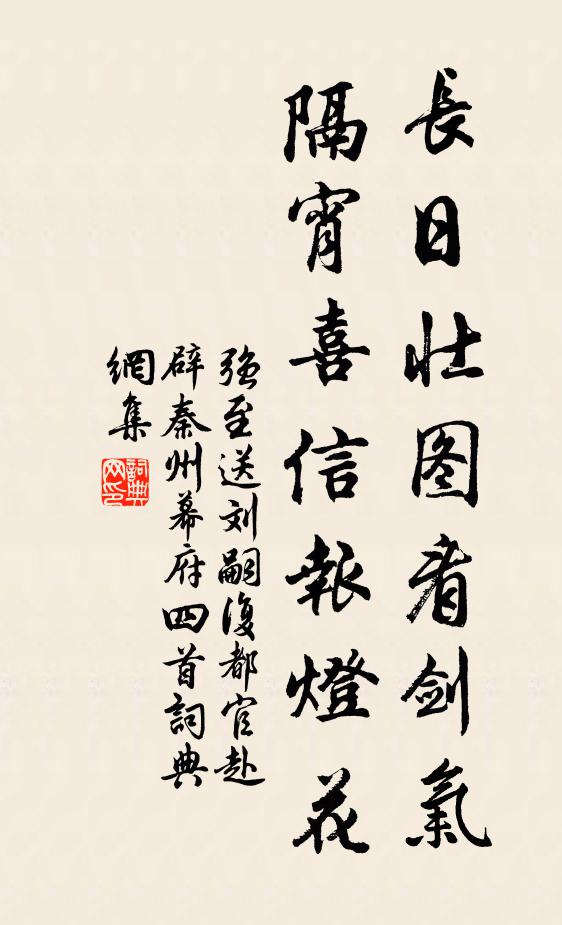 長日壮图看剑氣
隔宵喜信報燈花
强至送刘嗣復都官赴
辟秦州幕府四首詞典
網集
詞典
网印